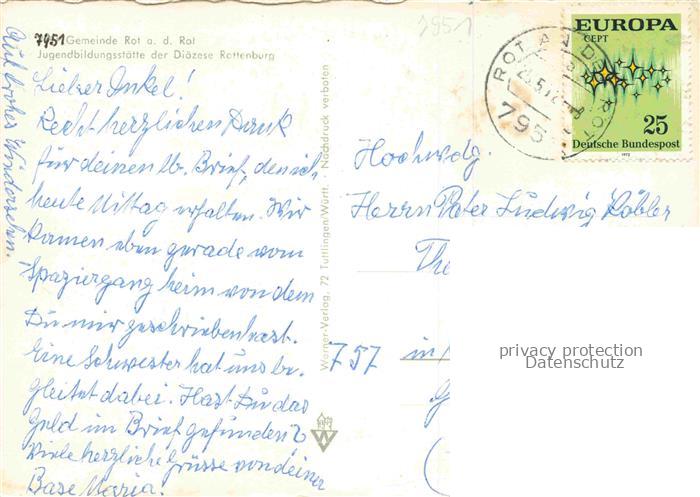 7951 Gemeinde Rot a. d. Rot
Jugendbildungsstätte der Diözese Rottenburg
Lieber Onkel!
Recht herzlichen Dank
für deinen lb. Brief, den ich
heute Mittag erhalten. Wir
kamen eben gerade vom
Spaziergang heim von dem
Du mir geschrieben hast.
Eine Schwester hat uns be-
gleitet dabei. Hast Du das
Geld im Brief gefunden?
Viele herzliche Grüsse von deiner
Base Maria.
Auf frohes Wiedersehn.
Werner-Verlag, 72 Tuttlingen/Württ. Nachdruck verboten
7951
ROT AN DER ROT
795
EUROPA
CEPT
25
Deutsche Bundespost
1972
Hochwdg.
Herrn Pater Ludwig Köbler
The
757 in
privacy protection
Datenschutz